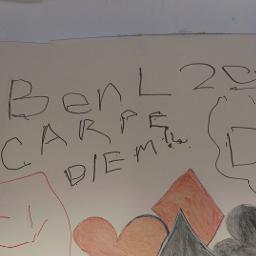 Ben L 20
CARPE
DIEM